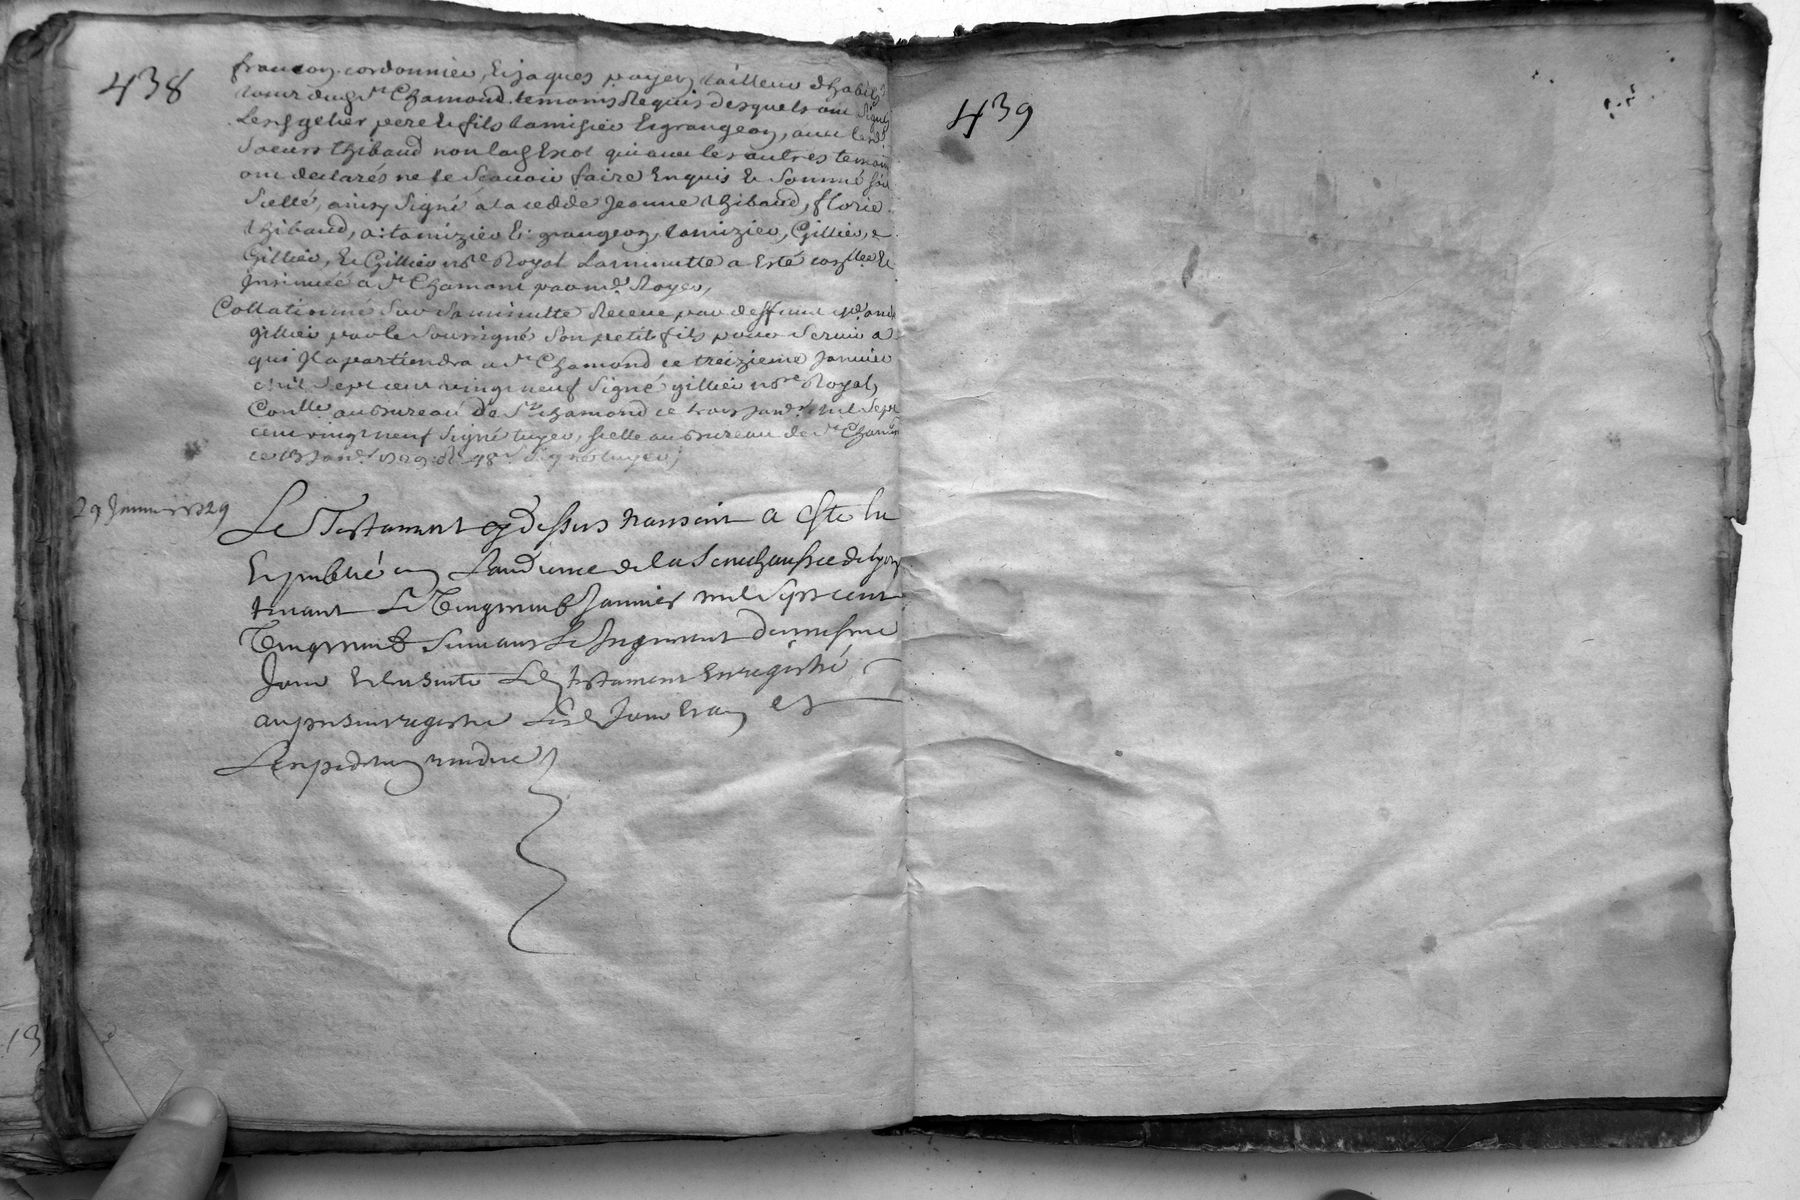 438
francoy cordonnier, et jaques payen tailleur d'habits
tous dud St Chamond temoins Requis desquels ont signé
Lesd gelier pere et fils tamisier et grangeon, avec lesd
soeurs thibaud non lad Exot qui avec les autres temoins
ont declarés ne le scavoir faire Enquis et sommé
siellé, ainsy signé a la cedde Jeanne thibaud, florie
thibaud, a: tamizier E: grangeon, tamizier, Gillier, e
Gillier, et Gillier nore Royal La minutte a Esté
Insinuée a St Chamont par md Royer,
Collationné sur sa minutte Receue par deffunt
gillier par le soussigné son petit fils pour servir a
qui Il apartiendra a St Chamond ce treizieme Janvier
mil sept cent vingt neuf signé gillier nore Royal,
Conlle au bureau de St chamond ce trois janr mil sept
cent vingt neuf signé luyer, sielle au bureau de St Chamond
ce 13 Janr 1729 signé luyer;
29 Janvier 1729
Le Testament cy dessus transcrit a esté lu
Et publié en L'audience de la Senechaussee de Lyon
tenant Le Vingtneuf Janvier mil Sept cent
Vingtneuf Suivant Le Jugement du mesme
Jour Et Ensuitte Led testament Enregistré
au present registre Lesd Jour Et an et
L'expedition rendue
439
13